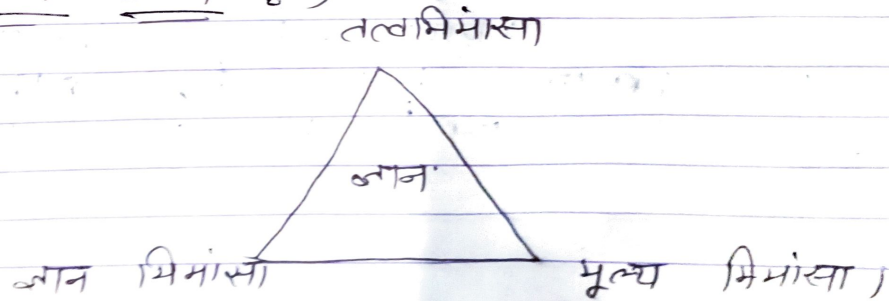 तत्वभिमांसा
ज्ञान
ज्ञान मिमांसा मूल्य मिमांसा ।